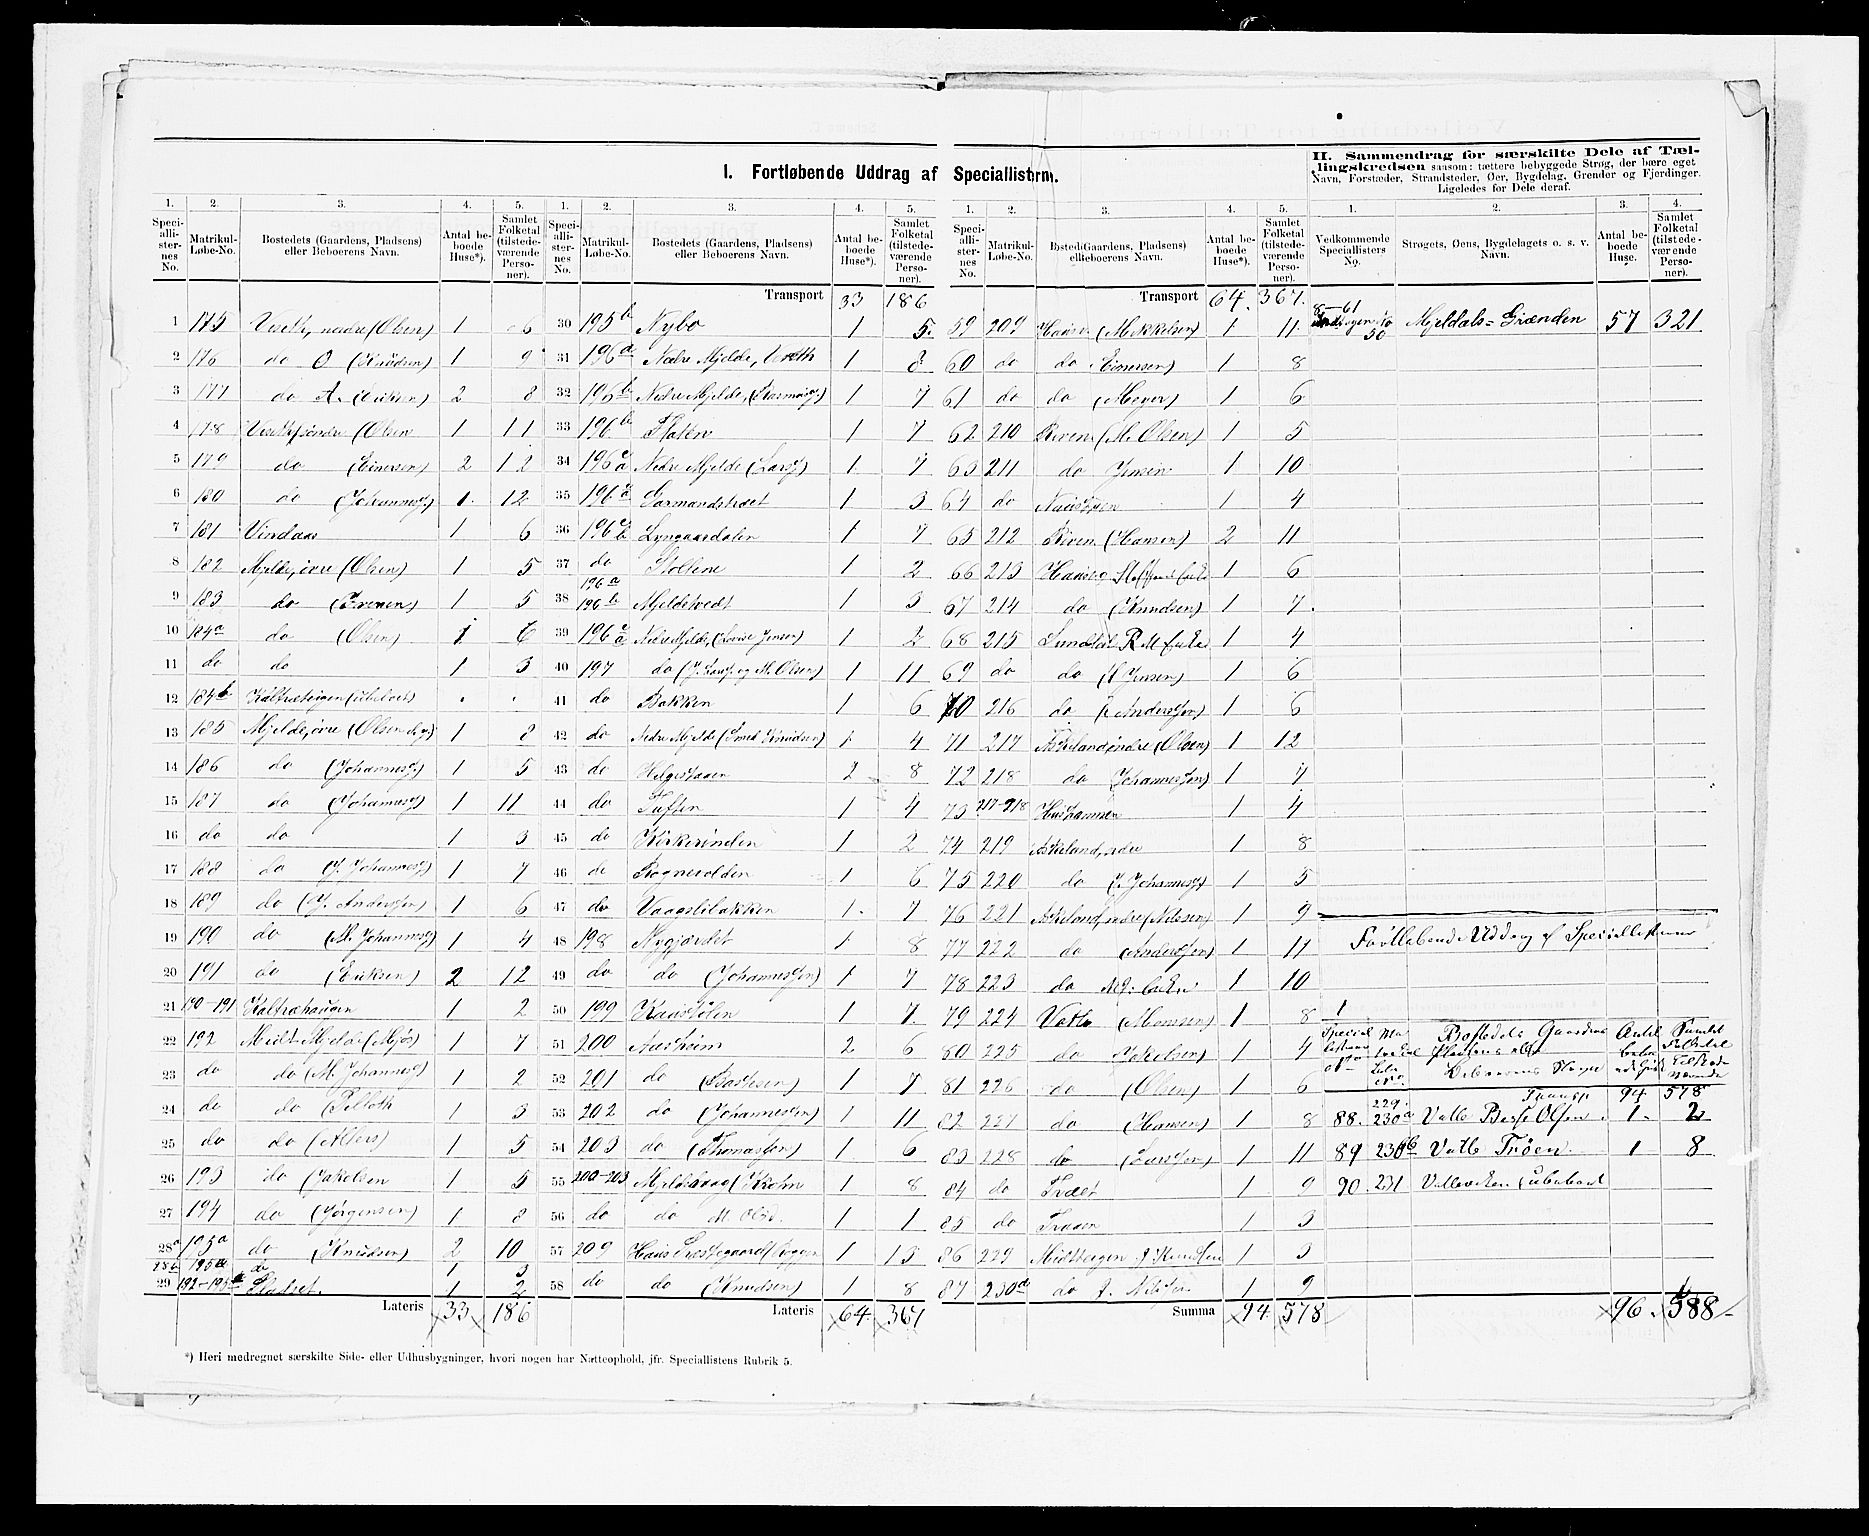 I. Fortløbende Uddrag af Speciallisterne.
II. Sammendrag for særskilte Dele af Tællingskredsen saasom: tættere bebyggede Strøg, der bære eget
Navn, Forstæder, Strandsteder, Øer, Bygdelag, Grender og Fjerdinger.
Ligeledes for Dele deraf.
1. 2. 3. 4. 5.
Speciallisternes No. Matrikul-Løbe-No. Bostedets (Gaardens, Pladsens) eller Beboerens Navn. Antal beboede Huse*). Samlet Folketal (tilstedeværende Personer).
1 175 Viseth, nedre (Olsen) 1 6
2 176 do O (Knudsen) 1 9
3 177 do A. (Eriksen) 2 8
4 178 Viseth søndre (Olsen 1 11
5 179 do (Einersen) 2 12
6 180 do (Johannesg.) 1 12
7 181 Vindaas 1 6
8 182 Mjelde, øvre (Olsen) 1 5
9 183 do (Iversen) 1 5
10 184a do (Olsen) 1 6
11 do do 1 3
12 184b (ubeboet) . .
13 185 Mjelde, øvre (Olsen 1 8
14 186 do (Johannesg.) 1 5
15 187 do (Johannesg) 1 11
16 do do 1 3
17 188 do (J. Johannesg) 1 7
18 189 do (J. Andersen) 1 6
19 190 do (M. Johannesg) 1 4
20 191 do (Eriksen) 2 12
21 190-191 Kaltræhaugen 1 2
22 192 Midt-Mjelde (Mjøs) 1 7
23 do do (M. Johannesg) 1 2
24 do do 1 3
25 do do (Alvers) 1 5
26 193 do (Jakobsen 1 5
27 194 do (Jørgensen) 1 8
28a 195a do (Knudsen) 2 10
28b 195a do 1 3
29 192-195a Pladset. 1 2
Lateris 33 186
1. 2. 3. 4. 5.
Speciallisternes No. Matrikul-Løbe-No. Bostedets (Gaardens, Pladsens) eller Beboerens Navn. Antal beboede Huse*). Samlet Folketal (tilstedeværende Personer).
Transport 33 186
30 195b Nybø 1 5
31 196a Nedre Mjelde, 1 8
32 196b Nedre Mjelde, 1 7
33 196b Flaten 1 7
34 196 Nedre Mjelde (Larsg) 1 7
35 196 Garmandstræet 1 3
36 196 Lyngaasdalen 1 7
37 do Stølene 1 2
38 196a 196b Mjeldetvedt 1 3
39 196 Nedre Mjelde, (Lovise Jensen) 1 2
40 197 do (J. Larsg. og M. Olsen) 1 11
41 do Bakken 1 6
42 do Nedre Mjelde (Smed Knudsen) 1 4
43 do Helgeshagen 2 8
44 do Tuften 1 4
45 do Kirkerinden 1 2
46 do Rognevolden 1 6
47 do Vaageslibakken 1 7
48 198 Nygjærdet 1 8
49 do do (Johannesen) 1 7
50 199 Kaastølen 1 7
51 200 Aasheim 2 6
52 201 do (Bastesen) 1 7
53 202 do (Johannesen) 1 11
54 203 do (Thomassen) 1 6
55 200-203 Mjeldehaug (Krohn 1 8
56 do do M. Olsd. 1 1
57 209 Haus Præstegaard 1 15
58 do do (Knudsen) 1 8
Lateris 64 367
1. 2. 3. 4. 5.
Speciallisternes No. Matrikul-Løbe-No. Bostedets (Gaardens, Pladsens) eller Beboerens Navn. Antal beboede Huse*). Samlet Folketal (tilstedeværende Personer).
Transport 64. 367.
59 209 Hause (Mikkelsen) 1 11
60 do do Einersen) 1 8
61 do do (Meyer) 1 6
62 210 Riven (M. Olsen) 1 5
63 211 do Jensen 1 10
64 do Naustøen 1 4
65 212 Riven (Hansen) 2 11
66 213 Hause 1 6
67 214 do (Knudsen) 1 7
68 215 1 4
69 do do (Jensen) 1 6
70 216 do (Anderssen) 1 6
71 217 Askeland, indre (Olsen) 1 12
72 218 do Johannessen) 1 7
73 217-218 1 4
74 219 Askeland, 1 8
75 220 do (J. Johannesg) 1 5
76 221 Askeland, indre (Nilssen) 1 9
77 222 do (Anderssen) 1 11
78 223 do 1 10
79 224 Vatle (Monsen) 1 8
80 225 do Jakobsen) 1 4
81 226 do (Olsen) 1 6
82 227 do (Hansen) 1 8
83 228 do (Larssen) 1 11
84 do Træet 1 9
85 do 1 3
86 229 Midtbergen J. Knudsen 1 3
87 230a do J. Nilsen 1 9
Summa 94 578
1. 2. 3. 4.
Vedkommende Speciallisters No. Strøgets, Øens, Bygdelagets o. s. v. Navn. Antal beboede Huse. Samlet Folketal (tilstedeværende Personer).
8-61 Mjeldals-Grænden 57 321
Fortløbende Uddrag af Speciallisterne
Bostedets Gaardens Antal Samlet
Transp. 94 578
88. 229. 230a Vatle Berge Olsen 1 2
89 230b Vatle Trøen 1 8
90. 231 Vatleviken (ubeboet
96. 588
*) Heri medregnet særskilte Side- eller Udhusbygninger, hvori nogen har Natteophold, jfr. Speciallistens Rubrik 5.